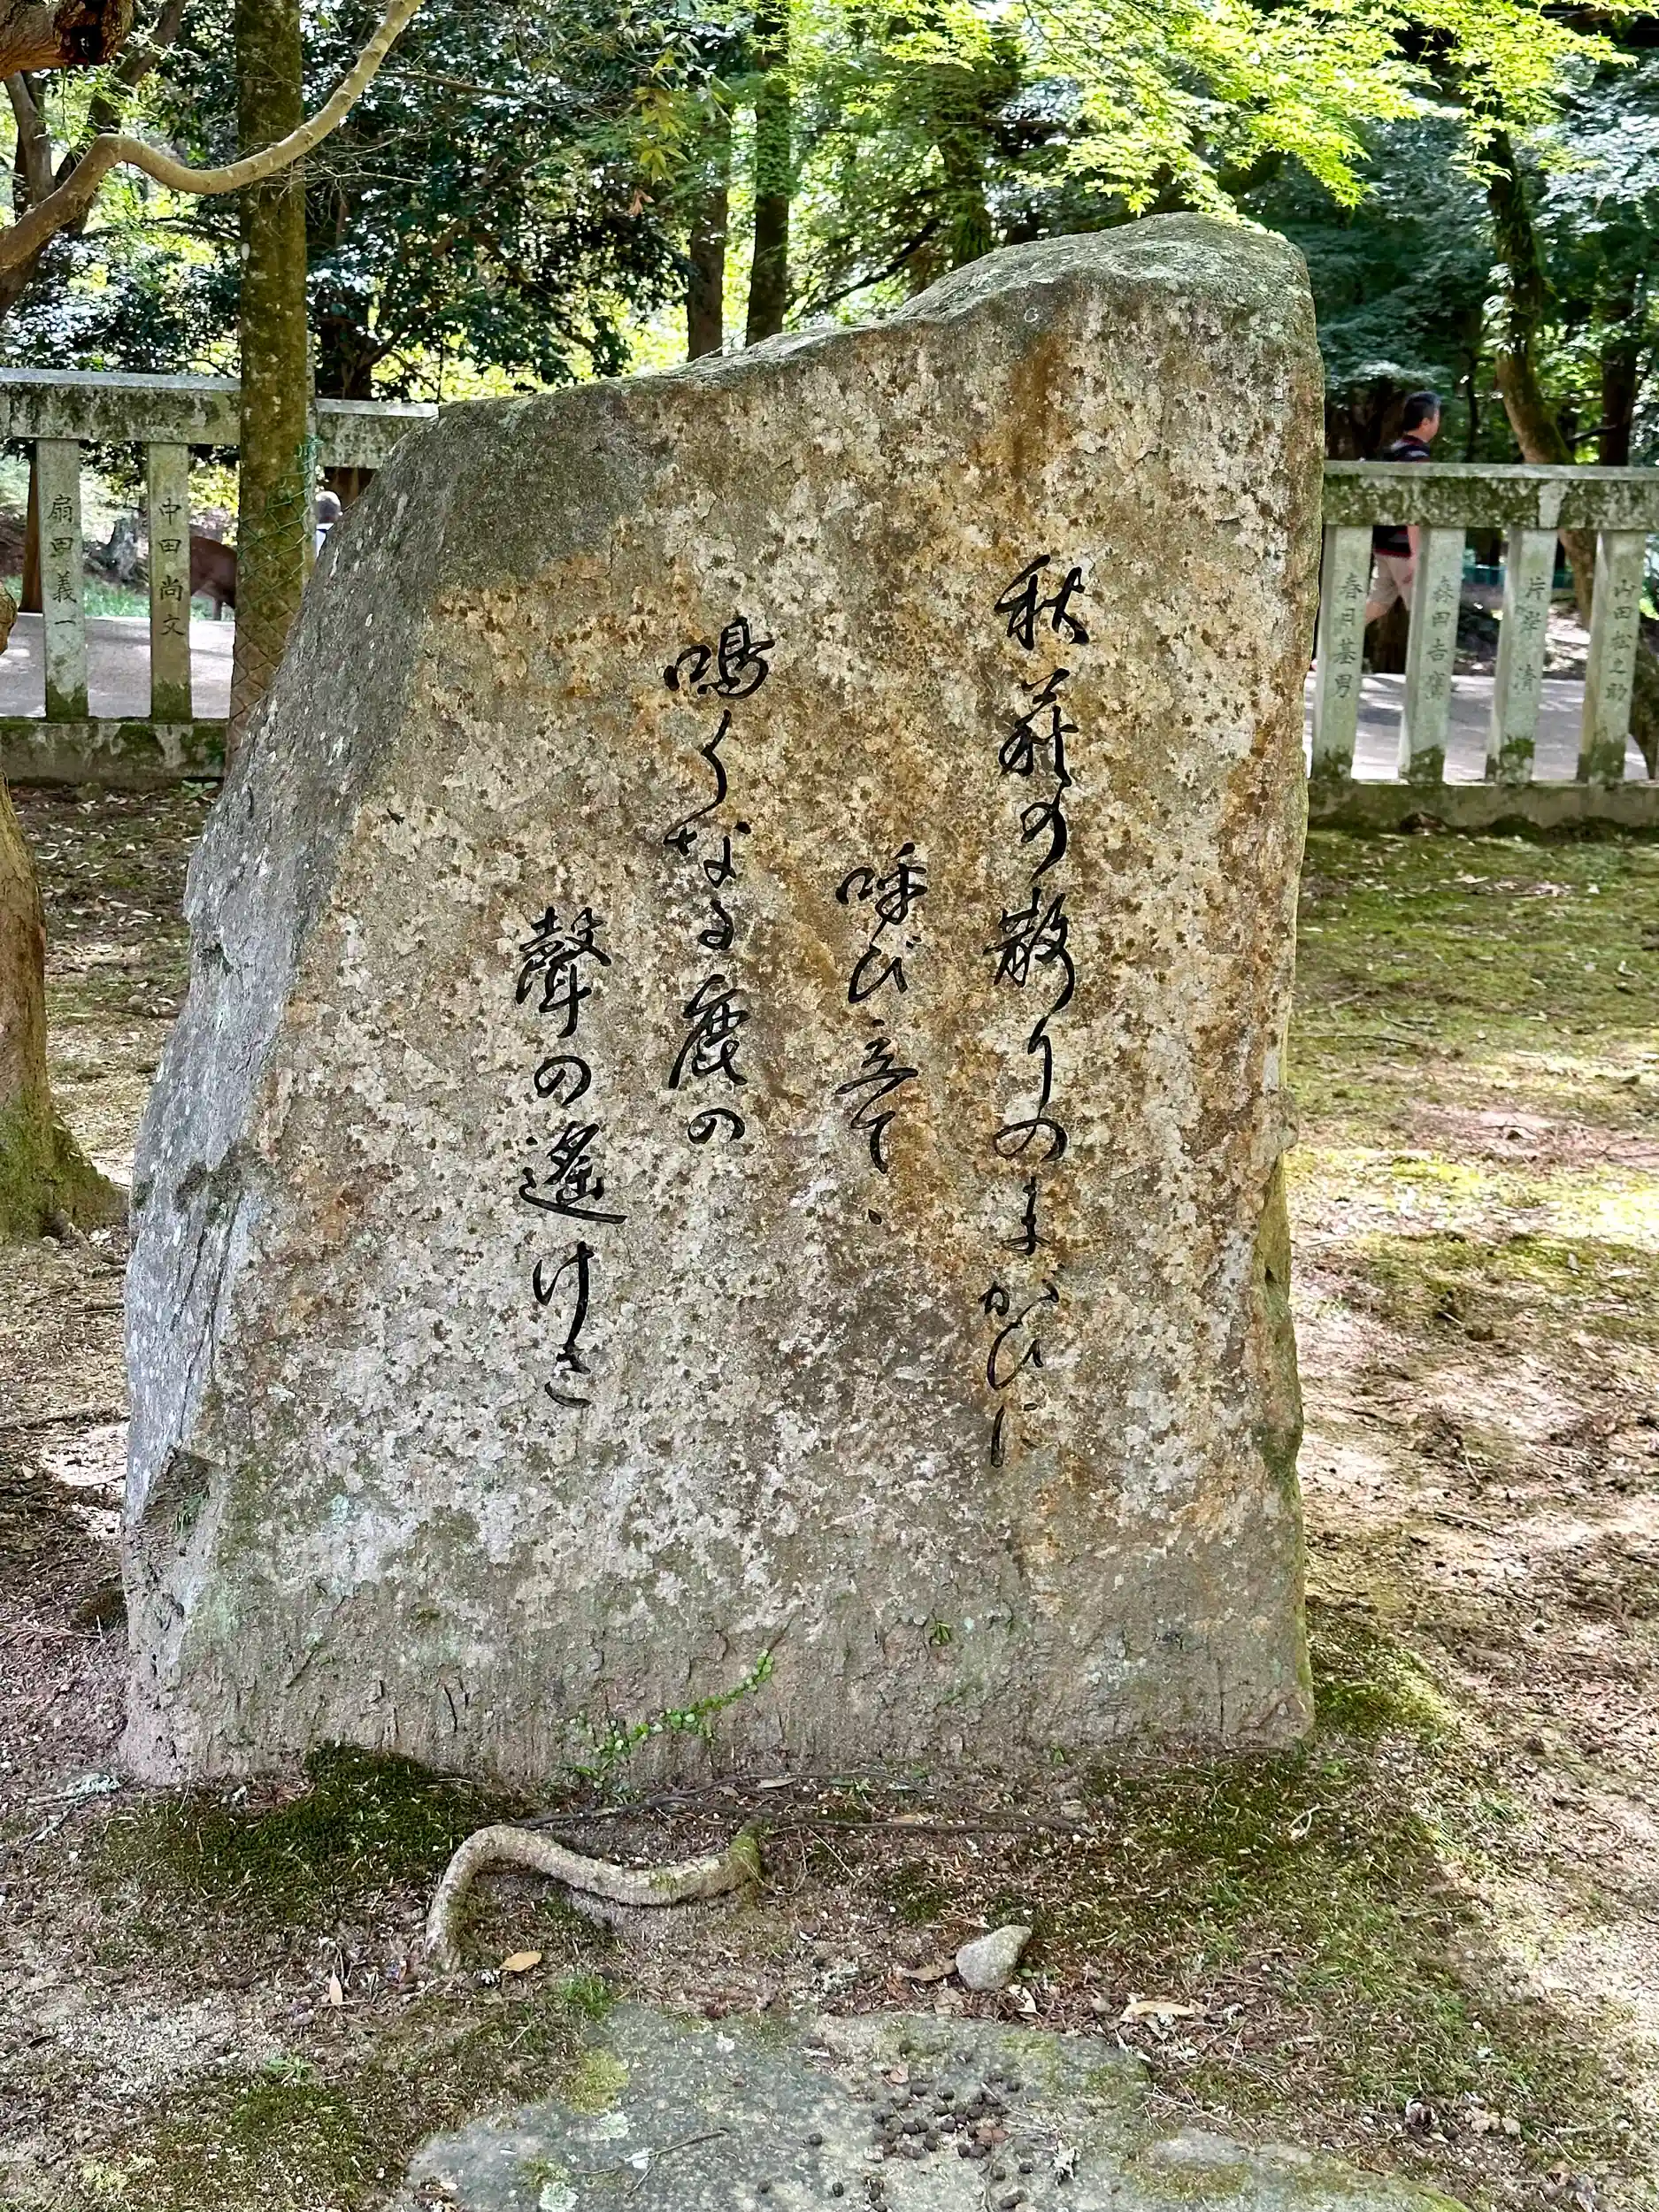 秋萩の散りのまがひに
呼び立てゝ
鳴くなる鹿の
聲の遙けさ
扇田義一
中田尚文
春日基男
森田吉鷹
片岸清
山田松之助